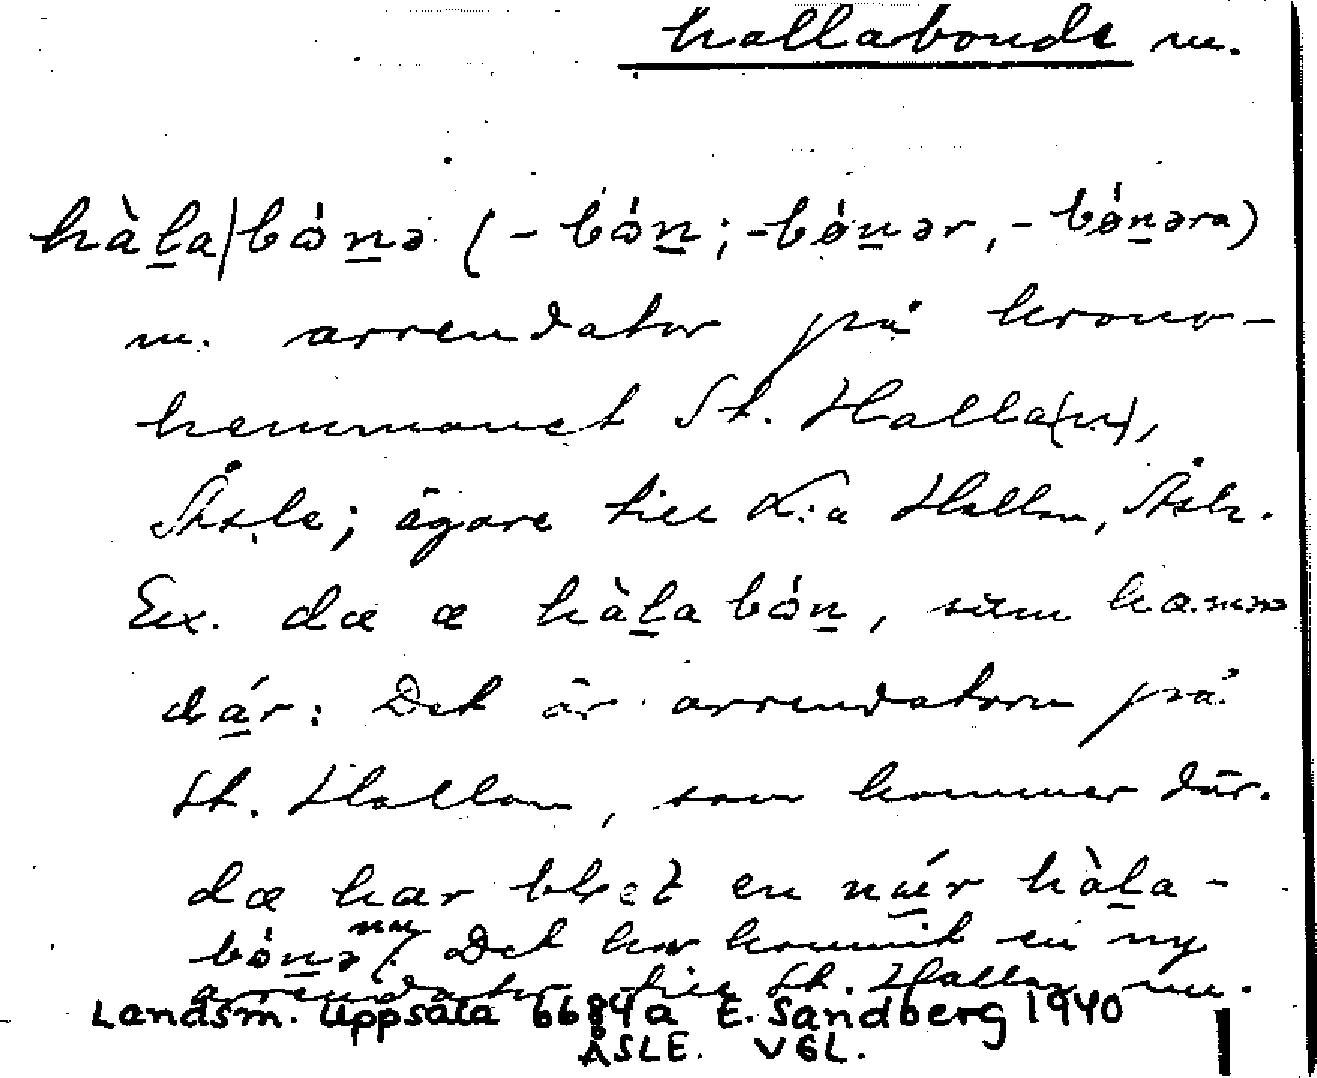 hallabonde m.
hàl̠a|bón̠ə (-bón̠; -bøn̠ər, -bøn̠əra)
m. arrendator på krono-
hemmanet St. Halla(n),
Åsle; ägare till L:a Hallan, Åsle.
Ex. dæ æ hàl̠a bón̠, såm kamər
dǽr: Det är arrendatorn på
St. Hallan, som kommer där.
dæ har blet en nýr hàl̠a-
bón̠ə nu: Det har kommit en ny
arrendator till St. Hallan nu.
Landsm. Uppsala 6684a E. Sandberg 1940
ÅSLE. VGL.